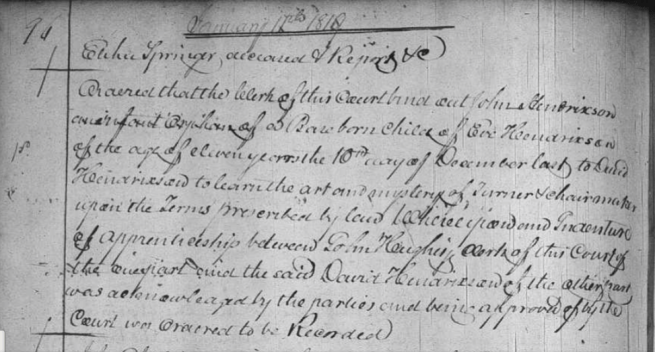 94
January 12th 1818
Elihu Springer, deceased & Report &c
Ordered that the Clerk of this Court bind out John Hendrixson
an infant Orphan of a Base born Child of Eve Hendrixson
of the age of eleven years the 10th day of December last to David
Hendrixson to learn the art and mystery of Turner & chairmaker
upon the Terms prescribed by law Whereupon and Indenture
of apprenticeship between John Hughes, clerk of this Court of
the one part and the said David Hendrixson of the other part
was acknowledged by the parties and being approved of by the
Court was Ordered to be Recorded